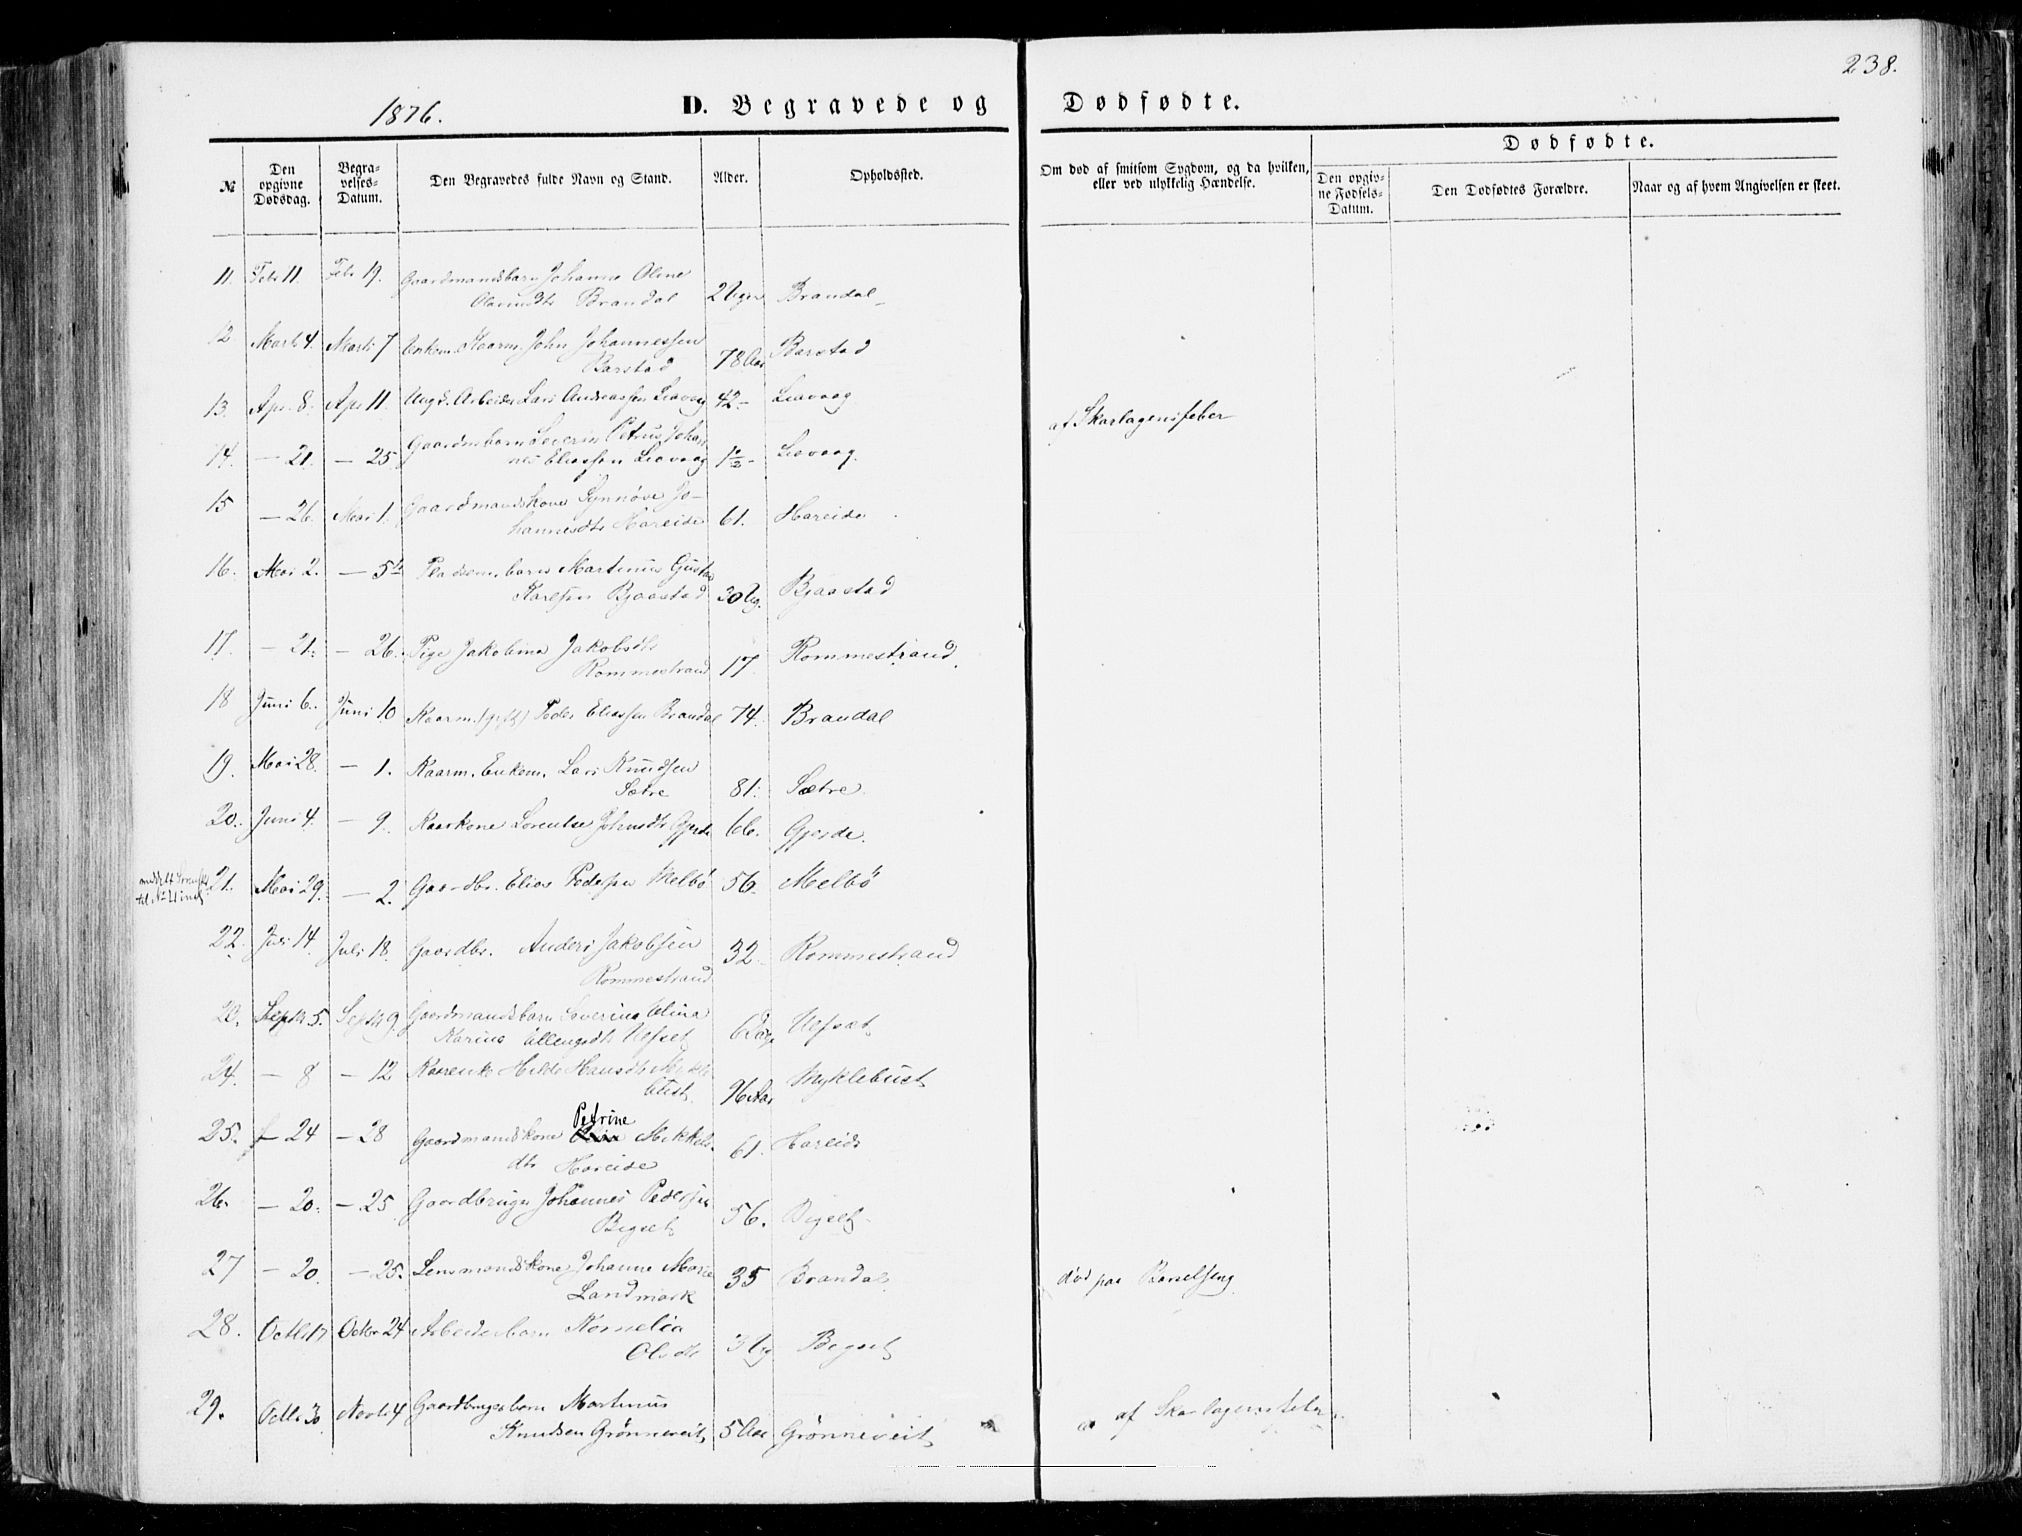 238.
1876.
D. Begravede og Dødfødte.
Dødfødte.
№
Den opgivne Dødsdag.
Begravelses-Datum.
Den Begravedes fulde Navn og Stand.
Alder.
Opholdssted.
Om død af smitsom Sygdom, og da hvilken, eller ved ulykkelig Hændelse.
Den opgivne Fødsels-Datum.
Den Dødfødtes Forældre.
Naar og af hvem Angivelsen er skeet.
11. Febr 11. Febr 19. Gaardmandsbarn Johanne Oline
Brandal 2 Uger Brandal
12 Marts 4. Marts 7 Enkem. Kaarm. John Johannessen
Barstad 78 Aar Barstad
13. Apr. 8. Apr. 11. Ungk. Arbeider Lars Andreassen Liavaag 42 - Liavaag
14. - 21. - 25 Gaardm.barn Severin Petrus Johan
nes Eliassen Liavaag 1½ - Liavaag. af Skarlagensfeber
15 - 26. Mai 1. Gaardmandskone Synnøve Jo-
hannesdtr Hareide 61. Hareide
16. Mai 2. - 5te Pladsem. barn Martinus Gustav
Karlsen Bjaastad 30 Ug. Bjaastad
17. - 21. - 26. Pige Jakobine Jakobsdtr
Rommestrand 17 Rommestrand.
18 Juni 6. Juni 10 Kaarm. (gift) Peder Eliassen Brandal 74. Brandal
19. Mai 28. - 1. Kaarm. Enkem. Lars Knudsen
Sætre 81. Sætre.
20. Juni 4. - 9. Kaarkone Lorentse Johnsdtr Gjerde 66. Gjerde.
til No 21 incl
21. Mai 29. - 2. Gaardbr. Elias Pedersen Melbö 56. Melbö
22. Juli 14 Juli 18. Gaardbr. Anders Jakobsen
Rommestrand 32 - Rommestrand
Septr 5. Septr 9. Gaardmandsbarn Severine Elina
Karine Ellingsdtr Ulfset 6 Dage Ulfsæt
24. - 8 - 12 Kaarenke Hilde Hansdtr Mykle
bust 96 Aar Myklebust
25. - 24 - 28 Gaardmandskone Petrine Mikkels
dtr Hareide 61. Hareide
26. - 20. - 25 Gaardbruger Johannes Pedersen
Bigset 56. Bigset
27 - 20. - 25. Lensmandskone Johanne Marie
Landmark 35 Brandal død paa Barselseng
28. Octbr 17 Octbr 24 Arbeiderbarn Kornelia
Olsdtr 3 Ug Bigset
29. Octbr 30 Novbr 4 Gaardbrugerbarn Martinus
Knudsen Grønneveit 5 Aar Grønneveit af Skarlagensfeber